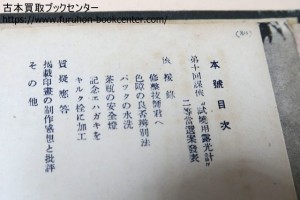 古本買取ブックセンター
https://www.furuhon-bookcenter.com/
本號目次
第十回課俠 "試驗用露光計"
二等當選案發表
俠援錄
修整技師君へ
色障の良否辨別法
バックの水洗
茶瓶の安全燈
記念エハガキを
キルク栓に加工
質疑應答
揭載印畫の制作感想と批評
その他